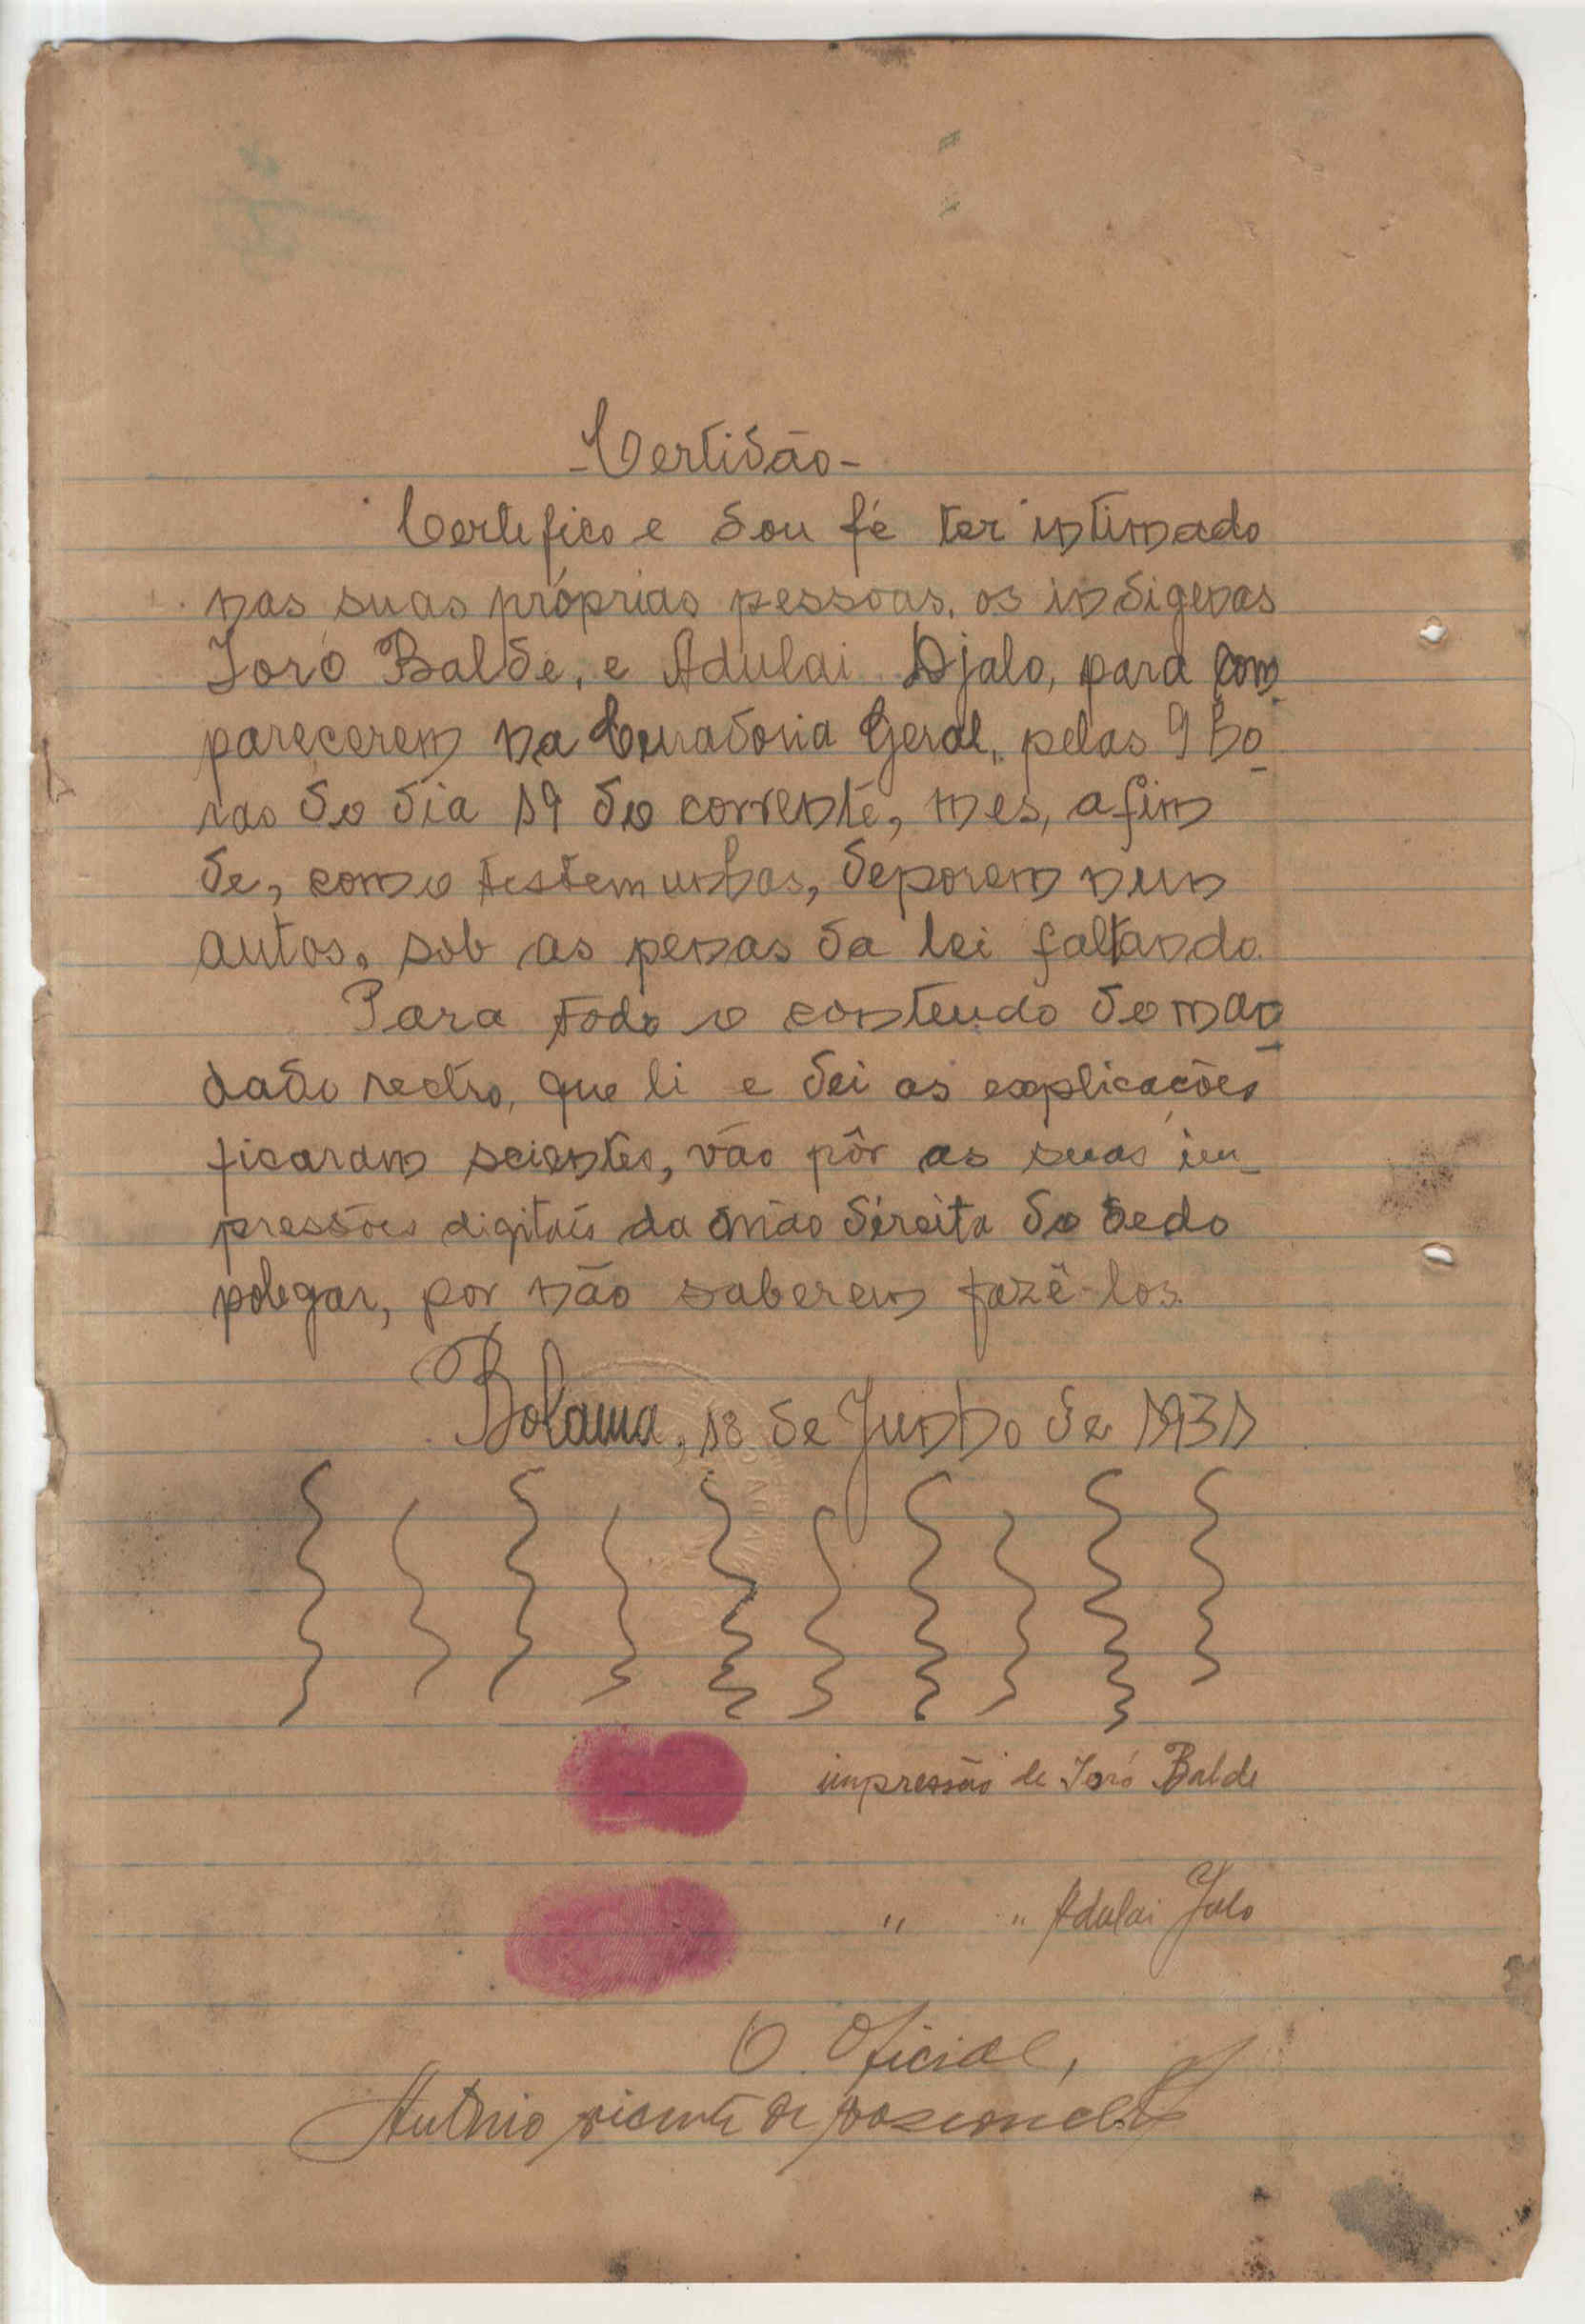 - Certidão -
Certefico e dou fé ter intimado
nas suas próprias pessoas, os indigenas
Ioró Balde, e Adulai Djalo, para com
parecerem na Curadoria Geral, pelas 9 ho
ras do dia 19 do corrente, mes, afim
de, como testemunhas, deporem nun
autos, sob as penas da lei faltando.
Para todo o conteudo do man
dado rectro, que li e dei as explicações
ficaram scientes, vão pôr as suas im-
pressões digitais da mão direita do dedo
polegar, por não saberem fazê-los.
Bolama, 18 de Junho de 1931
impressão de Ioró Balde
" " Adulai Jalo
O Oficial,
António Vicente de